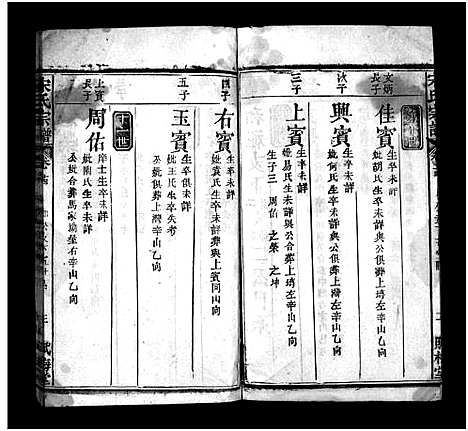 宋氏宗譜
文炳
長子
佳賓
生卒未詳
妣胡氏生卒未詳
次子
興賓
生卒未詳
妣何氏生卒未詳與公俱葬上塆左辛山乙向
三子
上賓
生卒未詳
妣易氏生卒未詳與公合葬上塆左辛山乙向
生子三 周佑 之榮 之坤
四子
右賓
生卒未詳
妣袁氏生卒未詳葬與上賓同山向
五子
玉賓
生卒未詳
妣王氏生卒失考
公妣俱葬上灣辛山乙向
十一世
上賓
長子
周佑
庠士生卒未詳
妣陶氏生卒未詳
公妣合葬馬家
右辛山乙向
宋氏宗譜